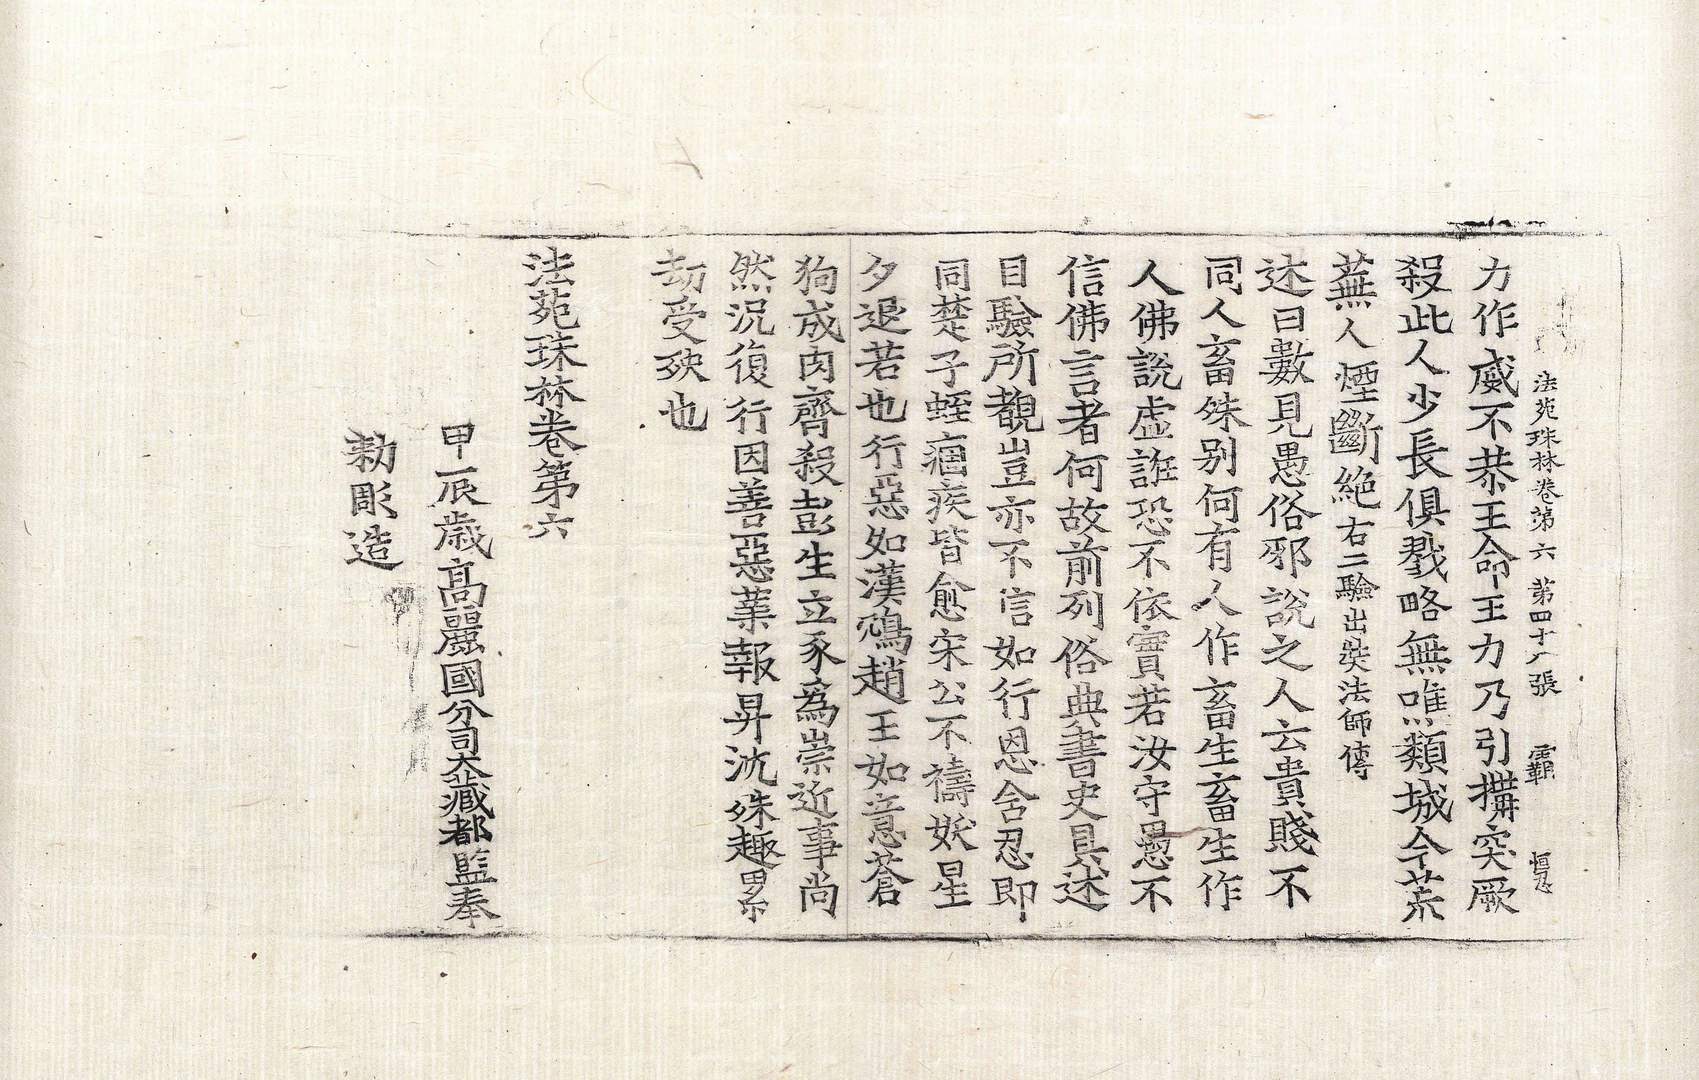 法苑珠林卷第六 第四十八張 霸
力作威不恭王王命王力乃引搆突厥
殺此人少長俱戮略無噍類城今荒
蕪人煙斷絶右二驗出奘法師傳
述曰數見愚俗邪說之人云貴賤不
同人畜殊别何有人作畜生畜生作
人佛說虛誑恐不依實若汝守愚不
信佛言者何故前列俗典書史具述
目驗所覩豈亦不信如行恩舍忍即
同楚子蛭痼疾皆愈宋公不禱妖星
夕退若也行惡如漢鴆趙王如意蒼
狗成肉齊殺彭生立豕為崇近事尚
然況復行因善惡業報昇沈殊趣累
劫受殃也
法苑珠林卷第六
甲辰歲高麗國分司大藏都監奉
勅彫造